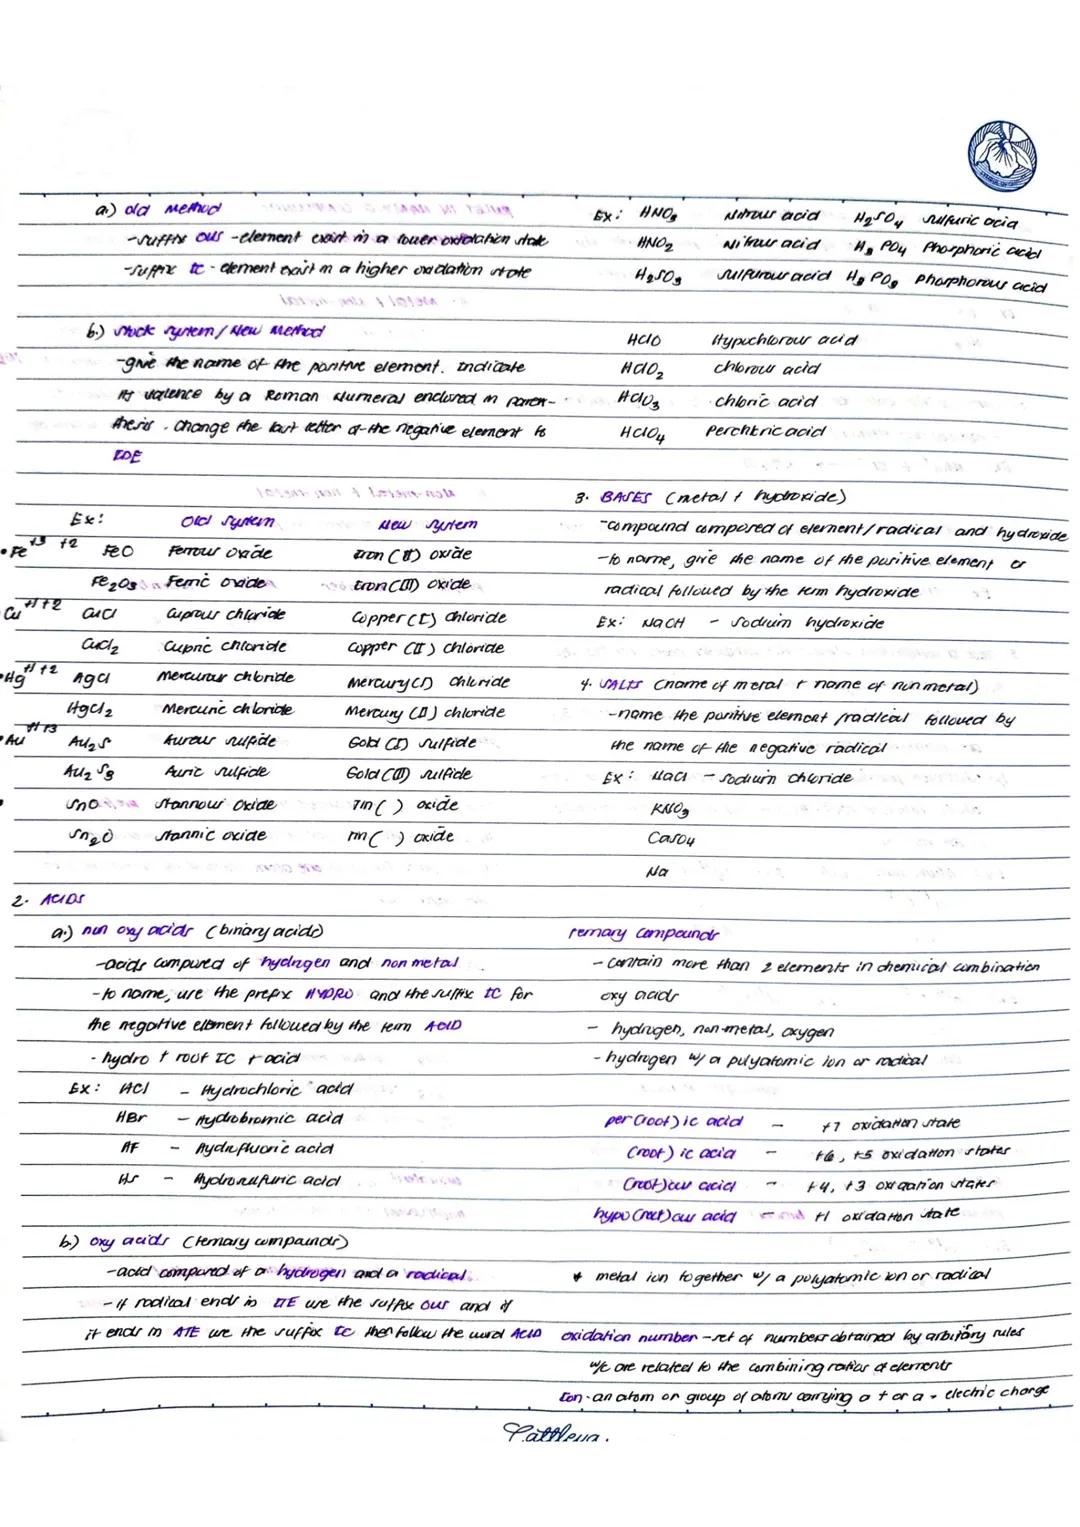 a.) old method
-suffix ous -element exist in a lower oxidation state
-suffix ic - element exist in a higher oxidation state
b.) stock system / New Method
-give the name of the positive element. Indicate
its valence by a Roman Numeral enclosed in paren-
thesis. Change the last letter of the negative element to
IDE
Ex: Old System New System
Fe +3 +2 FeO Ferrous oxide Iron (II) oxide
Fe2O3 Ferric oxide Iron (III) oxide
Cu +1 +2 CuCl Cuprous chloride Copper (I) chloride
CuCl2 Cupric chloride Copper (II) chloride
Hg +1 +2 AgCl Mercurous chloride Mercury (I) chloride
HgCl2 Mercuric chloride Mercury (II) chloride
Au +1 +3 Au2S Aurous sulfide Gold (I) sulfide
Au2S3 Auric sulfide Gold (III) sulfide
SnO Stannous Oxide Tin ( ) oxide
Sn2O Stannic oxide Tin ( ) oxide
2. ACIDS
a.) non oxy acids (binary acids)
-acids composed of hydrogen and non metal
-to name, use the prefix HYDRO and the suffix IC for
the negative element followed by the term ACID
- hydro + root IC + acid
Ex: HCl - Hydrochloric acid
HBr - Hydrobromic acid
HF - Hydrofluoric acid
HS - Hydrosulfuric acid
b.) oxy acids (ternary compounds)
-acid composed of a hydrogen and a radical
-if radical ends in ITE use the suffix ous and if
it ends in ATE use the suffix IC then follow the word ACID
Ex: HNO3 Nitrous acid H2SO4 sulfuric acid
HNO2 Nitrous acid H3PO4 Phosphoric acid
H2SO3 sulfurous acid H3PO3 phosphorous acid
HClO Hypochlorous acid
HClO2 chlorous acid
HClO3 chloric acid
HClO4 Perchloric acid
3. BASES (metal + hydroxide)
-compound composed of element/radical and hydroxide
-to name, give the name of the positive element or
radical followed by the term hydroxide
Ex: NaOH - Sodium hydroxide
4. SALTS (name of metal + name of nonmetal)
-name the positive element /radical followed by
the name of the negative radical
Ex: NaCl - Sodium chloride
KNO3
CaSO4
Na
Ternary Compounds
- contain more than 2 elements in chemical combination
oxy acids
- hydrogen, non-metal, oxygen
- hydrogen w/ a polyatomic ion or radical
per (root) ic acid - +7 oxidation state
(root) ic acid - +6, +5 oxidation states
(root) ous acid - +4, +3 oxidation states
hypo (root) ous acid - +1 oxidation state
* metal ion together w/ a polyatomic ion or radical
oxidation number - set of numbers obtained by arbitrary rules
w/c are related to the combining ratios of elements
Ion - an atom or group of atoms carrying a + or a - electric charge
Cattleya.